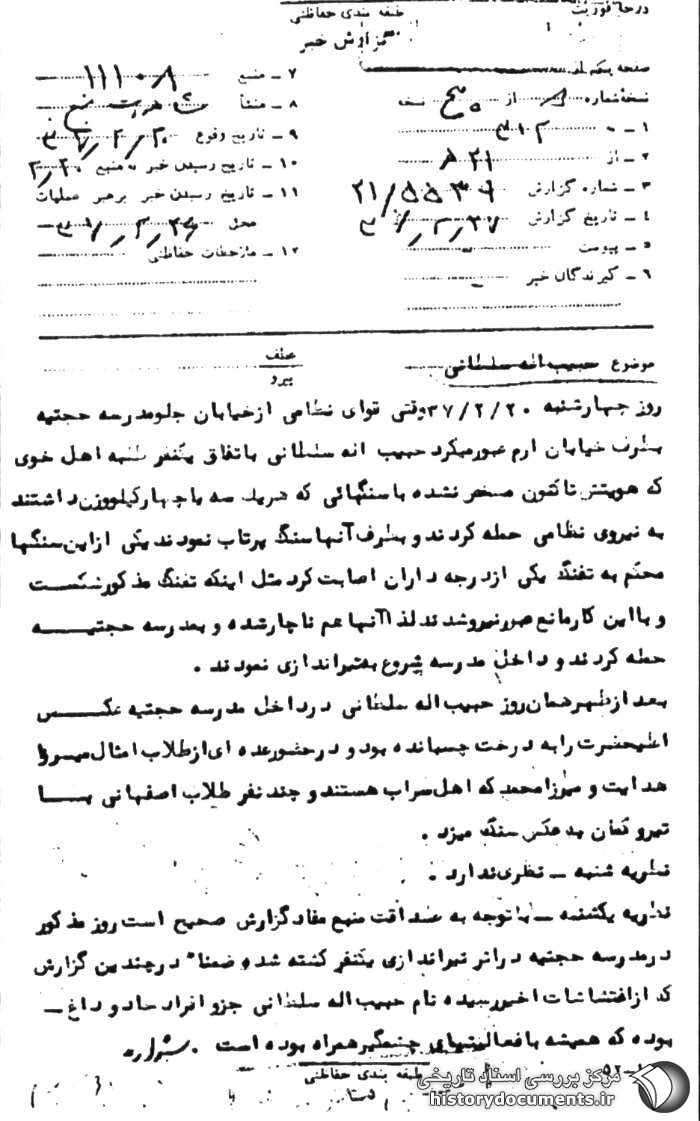 درجه فوریت
طبقه بندی حفاظتی
گزارش خبر
صفحه یکم از
نسخه شماره از نسخه
۱ - به ۳۱۲
۲ - از ۲۱ ه
۳ - شماره گزارش ۲۱/۵۵۳۶
۴ - تاریخ گزارش
۵ - پیوست
۶ - گیرندگان خبر
۷ - منبع ۱۱۱۰۸
۸ - منشأ
۹ - تاریخ وقوع ۳۷/۲/۲۰
۱۰ - تاریخ رسیدن خبر به منبع ۲/۲۰
۱۱ - تاریخ رسیدن خبر برهبر عملیات
محل
۱۲ - ملاحظات حفاظتی
موضوع حبیب اله سلطانی
عطف
پیرو
روز چهارشنبه ۳۷/۲/۲۰ وقتی قوای نظامی ازخیابان جلومدرسه حجتیه
بطرف خیابان ارم عبورمیکرد حبیب اله سلطانی باتفاق یکنفر طلبه اهل خوی
که هویتش تاکنون مشخص نشده باسنگهائی که هریك سه یاچهارکیلووزن داشتند
به نیروی نظامی حمله کردند و بطرف آنهاسنگ پرتاب نمودند یکی ازاین سنگها
محکم به تفنگ یکی ازدرجه داران اصابت کرد مثل اینکه تفنگ مذکورشکست
و بااین کارمانع عبورنیروشدند لذا آنها هم ناچارشده و بمدرسه حجتیه
حمله کردند و داخل مدرسه شروع به تیراندازی نمودند .
بعد ازظهرهمان روز حبیب اله سلطانی درداخل مدرسه حجتیه عکس
اعلیحضرت رابه درخت چسبانده بود و درحضورعده ای ازطلاب امثال میرزا
هدایت و میرزامحمد که اهل سراب هستند و چند نفر طلاب اصفهانی با
تیرو کمان به عکس سنگ میزد .
نظریه شنبه - نظری ندارد .
نظریه یکشنبه - باتوجه به صداقت منبع مفاد گزارش صحیح است روز مذکور
درمدرسه حجتیه دراثر تیراندازی یکنفر کشته شده ضمنا" درچندین گزارش
که ازاغتشاشات اخیررسیده نام حبیب اله سلطانی جزو افراد حاد و داغ -
بوده که همیشه بافعالیتهای چشمگیرهمراه بوده است .
طبقه بندی حفاظتی
مرکز بررسی اسناد تاریخی
historydocuments.ir